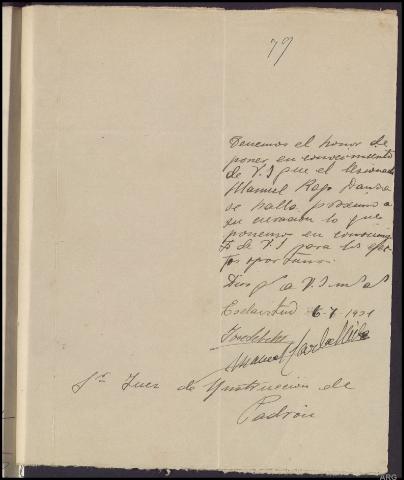 79
Tenemos el honor de
poner en conocimiento
de V.S que el lesionado
Manuel Rego
se halla proximo a
su curacion lo que
ponemos en conocimien
to de V.S para los efec
tos oportunos.
Dios g a V.S m a
6-7 1931
Manuel
Sr Juez de Ynstruccion de
Padrón
ARG